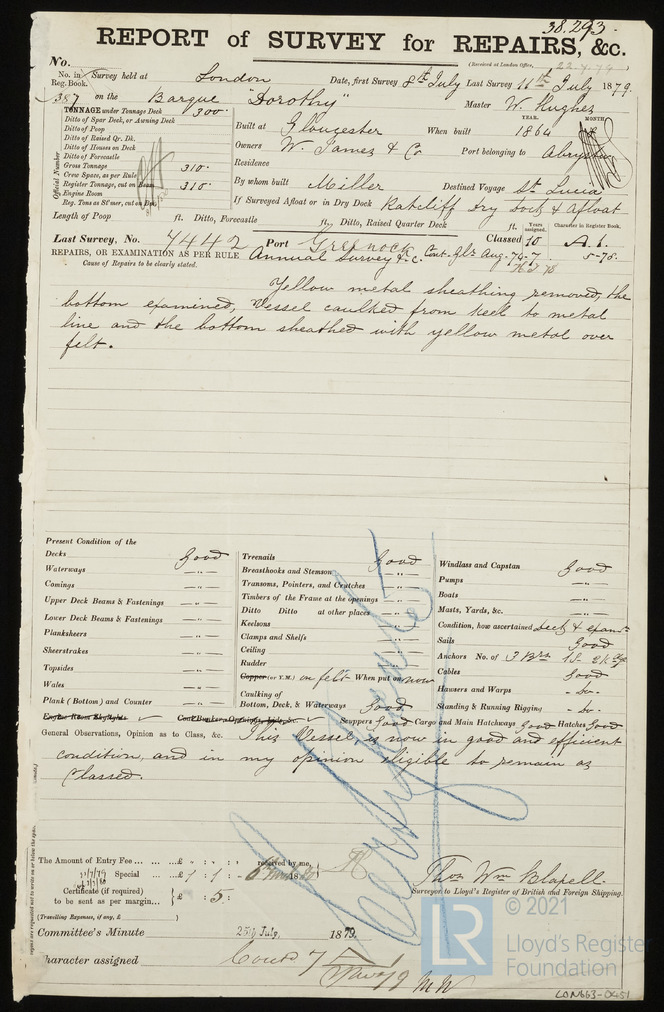 38.293.
REPORT of SURVEY for REPAIRS, &c.
No.
(Received at London Office, 22.7.79)
No. in Survey held at London Date, first Survey 8th July Last Survey 11th July 1879.
Reg. Book.
387 on the Barque "Dorothy" Master W. Hughes
TONNAGE under Tonnage Deck 300.
Ditto of Spar Deck, or Awning Deck
Ditto of Poop
Ditto of Raised Qr. Dk.
Ditto of Houses on Deck
Ditto of Forecastle
Gross Tonnage 310.
Crew Space, as per Rule
Register Tonnage, cut on Beam 310.
Engine Room
Reg. Tons as Stmer, cut on Bm
Official Number
YEAR. MONTH
Built at Gloucester When built 1864
Owners W. James & Co Port belonging to Abrystw
Residence
By whom built Miller Destined Voyage St Lucia
If Surveyed Afloat or in Dry Dock Ratcliff Dry Dock & Afloat
Length of Poop ft. Ditto, Forecastle ft., Ditto, Raised Quarter Deck ft.
Years assigned. Character in Register Book.
Last Survey, No. 4442 Port Greenock Classed 10 A.1.
REPAIRS, OR EXAMINATION AS PER RULE Annual Survey &c. Cont. Gls Aug. 74-7 5-78.
Cause of Repairs to be clearly stated.
Yellow metal sheathing removed, the
bottom examined, Vessel caulked from keel to metal
line and the bottom sheathed with yellow metal over
felt.
Present Condition of the
Decks Good
Waterways — " —
Comings — " —
Upper Deck Beams & Fastenings — " —
Lower Deck Beams & Fastenings — " —
Planksheers — " —
Sheerstrakes — " —
Topsides — " —
Wales — " —
Plank (Bottom) and Counter — " —
Engine Room Skylights
Treenails Good
Breasthooks and Stemson — " —
Transoms, Pointers, and Crutches — " —
Timbers of the Frame at the openings — " —
Ditto Ditto at other places — " —
Keelsons — " —
Clamps and Shelfs — " —
Ceiling — " —
Rudder — " —
Copper (or Y.M.) on felt When put on now
Caulking of
Bottom, Deck, & Waterways Good
Coal Bunkers Openings, Lids, &c. Scuppers Good Cargo and Main Hatchways Good Hatches Good
Windlass and Capstan Good
Pumps — " —
Boats — " —
Masts, Yards, &c. — " —
Condition, how ascertained Deck & examn
Sails Good
Anchors No. of 3 Brs 1 S. 2 Kedge
Cables Good
Hawsers and Warps - Do -
Standing & Running Rigging - Do -
General Observations, Opinion as to Class, &c. This Vessel, is now in good and efficient
condition, and in my opinion eligible to remain as
Classed.
The Amount of Entry Fee ... ... ... £ : : received by me,
Special ... ... £ 1 : 1 :
Certificate (if required)
to be sent as per margin... } £ : 5 :
(Travelling Expenses, if any, £ )
Thos Wm Blapell.
Surveyor to Lloyd's Register of British and Foreign Shipping.
Committee's Minute 25th July, 1879.
Character assigned Contd 7
MW
© 2021
LR Lloyd's Register
Foundation
LON663-0451